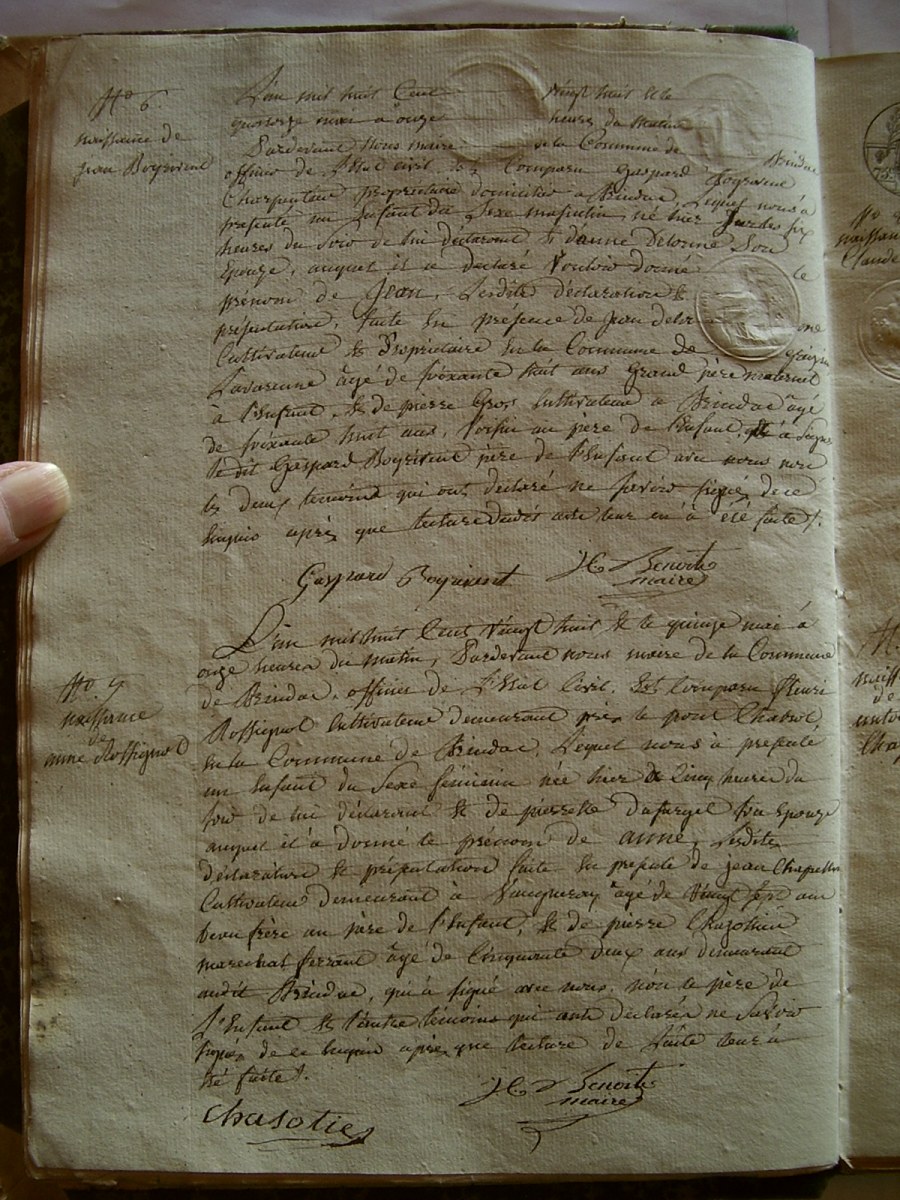 N° 6.
naissance de
jean Boyrivent
L'an mil huit Cent vingt huit et le
quatorze mai à onze heures du matin
Pardevant nous maire de la Commune de Brindas
officier de l'Etat Civil Est Comparu Gaspard Boyrivent
Charpentier propriétaire domicilié a Brindas, Lequel nous à
presenté un Enfant du Sexe masculin, né hier Sur les six
heures du Soir de lui déclarant & d'anne Delorme Son
Epouze, auquel il a declaré Vouloir donné le
prénom de Jean, Lesdite déclaration &
présentation, faite En présence de jean delorme
Cultivateur & Propriétaire En la Commune de Grézieu
Lavarenne âgé de soixante huit ans Grand père maternel
à l'Enfant, & de pierre Gros Cultivateur a Brindas âgé
de soixante huit ans, Voisin au père de l'Enfant, à Signé
Ledit Gaspard Boyrivent père de l'Enfant avec nous non
les deux temoins qui ont declaré ne Savoir signé, de ce
Enquis après que lecture du present acte leur en à été faite /.
Gaspard Boyrivent
Benoite
maire
N° 7
naissance
de
anne Rossignol
L'an mil huit Cent Vingt huit & le quinze mai à
onze heures du matin, Pardevant nous maire de la Commune
de Brindas, officier de l'Etat Civil, Est Comparu Henri
Rossignol Cultivateur demeurant près le pont Chabrol,
En la Commune de Brindas, Lequel nous à presenté
un Enfant du Sexe féminin née hier à Cinq heures du
soir de lui déclarant & de pierrette dufurgel son Epouze
auquel il à donné le prénom de anne, Lesdites
déclaration & présentation faite En presence de jean Chapelle
Cultivateur demeurant à âgé de Vingt Sept ans
beau frère au père de l'Enfant, & de pierre Chazottier
marechal ferrant âgé de Cinquante deux ans demeurant
audit Brindas, qui à signé avec nous, non le père de
L'Enfant & l'autre témoins qui ont déclarés ne Savoir
signé, de ce Enquis après que lecture de Suite leur à
été faite /.
Chasotier
Benoite
maire
N°
naissan
Claude
N°
naiss
de
anto
Cha